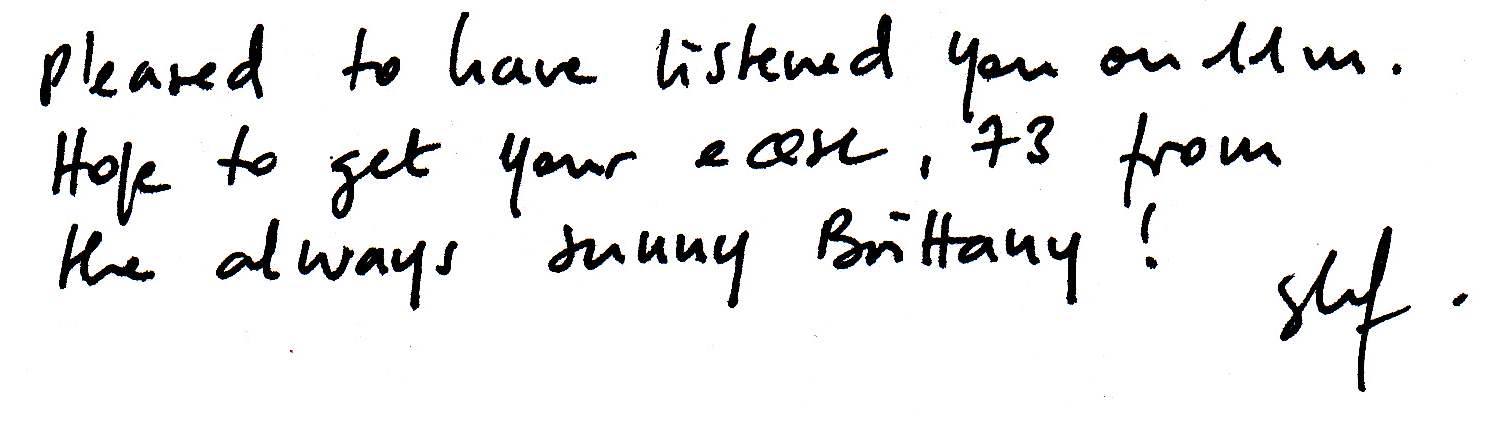 Pleased to have listened you on 11m.
Hope to get your eQSL, 73 from
the always sunny Brittany !